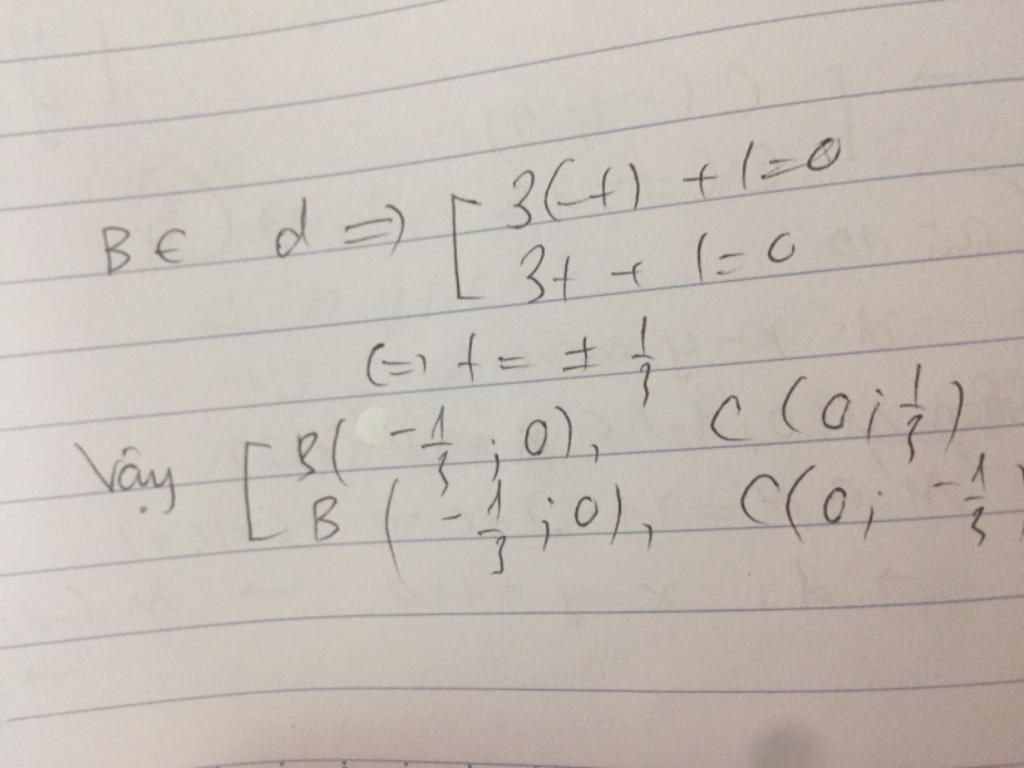 B ∈ d => [ 3(-t) + 1 = 0
3t + 1 = 0
<=> t = ± 1/3
Vậy [ B( -1/3 ; 0), C ( 0 ; 1/3 )
B ( -1/3 ; 0), C( 0 ; -1/3 )